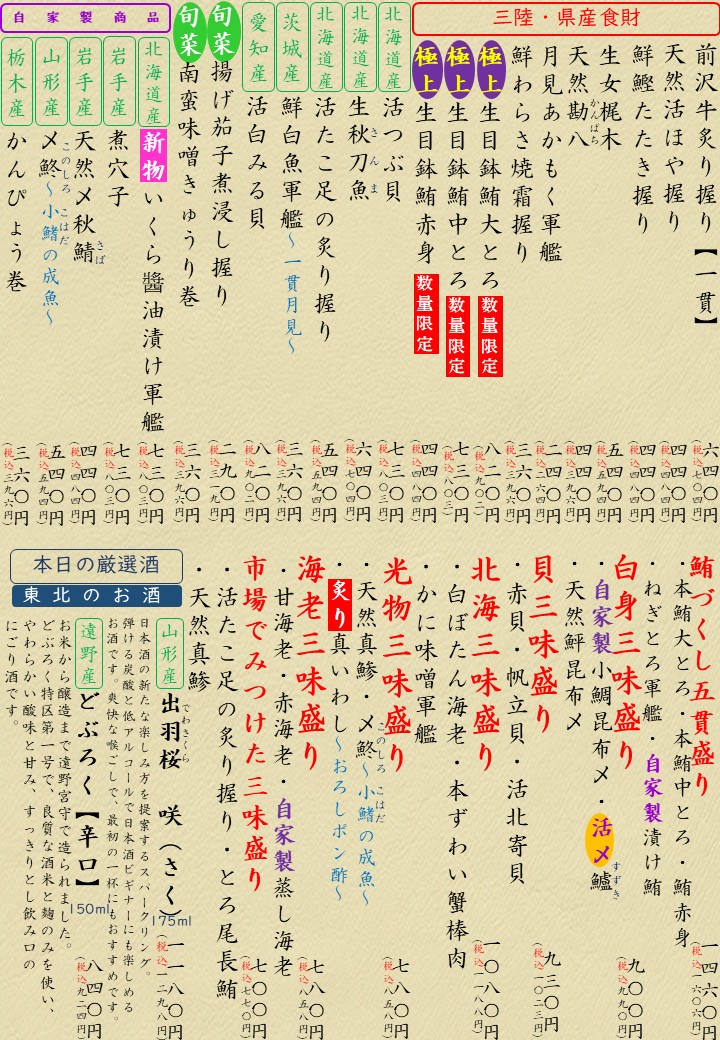 三陸・県産食財
前沢牛炙り握り【一貫】 六四〇円(税込七〇四円)
天然活ほや握り 四四〇円(税込四八四円)
鮮鰹たたき握り 四四〇円(税込四八四円)
生女梶木 五四〇円(税込五九四円)
天然勘八 かんぱち 四四〇円(税込四八四円)
月見あかもく軍艦 二四〇円(税込二六四円)
鮮わらさ焼霜握り 三六〇円(税込三九六円)
極上 生目鉢鮪大とろ 数量限定 八二〇円(税込九〇二円)
極上 生目鉢鮪中とろ 数量限定 七三〇円(税込八〇三円)
極上 生目鉢鮪赤身 数量限定 四四〇円(税込四八四円)
北海道産 活つぶ貝 七三〇円(税込八〇三円)
北海道産 生秋刀魚 さんま 六四〇円(税込七〇四円)
北海道産 活たこ足の炙り握り 五四〇円(税込五九四円)
茨城産 鮮白魚軍艦~一貫月見~ 三六〇円(税込三九六円)
愛知産 活白みる貝 八二〇円(税込九〇二円)
旬菜 揚げ茄子煮浸し握り 二九〇円(税込三一九円)
旬菜 南蛮味噌きゅうり巻 三六〇円(税込三九六円)
自家製商品
北海道産 新物 いくら醬油漬け軍艦 七三〇円(税込八〇三円)
岩手産 煮穴子 七三〇円(税込八〇三円)
岩手産 天然〆秋鯖 さば 四四〇円(税込四八四円)
山形産 〆鮗~小鰭の成魚~ このしろ こはだ 五四〇円(税込五九四円)
栃木産 かんぴょう巻 三六〇円(税込三九六円)
鮪づくし五貫盛り 一四六〇円(税込一六〇六円)
・本鮪大とろ・本鮪中とろ・鮪赤身
・ねぎとろ軍艦・自家製漬け鮪
白身三味盛り 九〇〇円(税込九九〇円)
・自家製小鯛昆布〆・活〆鱸 すずき
・天然鮃昆布〆
貝三味盛り 九三〇円(税込一〇二三円)
・赤貝・帆立貝・活北寄貝
北海三味盛り 一〇八〇円(税込一一八八円)
・白ぼたん海老・本ずわい蟹棒肉
・かに味噌軍艦
光物三味盛り 七八〇円(税込八五八円)
・天然真鯵・〆鮗~小鰭の成魚~ このしろ こはだ
・炙り真いわし~おろしポン酢~
海老三味盛り 七八〇円(税込八五八円)
・甘海老・赤海老・自家製蒸し海老
市場でみつけた三味盛り 七〇〇円(税込七七〇円)
・活たこ足の炙り握り・とろ尾長鮪
・天然真鯵
本日の厳選酒
東北のお酒
山形産 出羽桜 咲(さく) でわさくら 175ml 一一八〇円(税込一二九八円)
日本酒の新たな楽しみ方を提案するスパークリング。
弾ける炭酸と低アルコールで日本酒ビギナーにも楽しめる
お酒です。爽快な喉ごしで、最初の一杯にもおすすめです。
遠野産 どぶろく【辛口】 150ml 八四〇円(税込九二四円)
お米から醸造まで遠野宮守で造られました。
どぶろく特区第一号で、良質な酒米と麹のみを使い、
やわらかい酸味と甘み、すっきりとし飲み口の
にごり酒です。